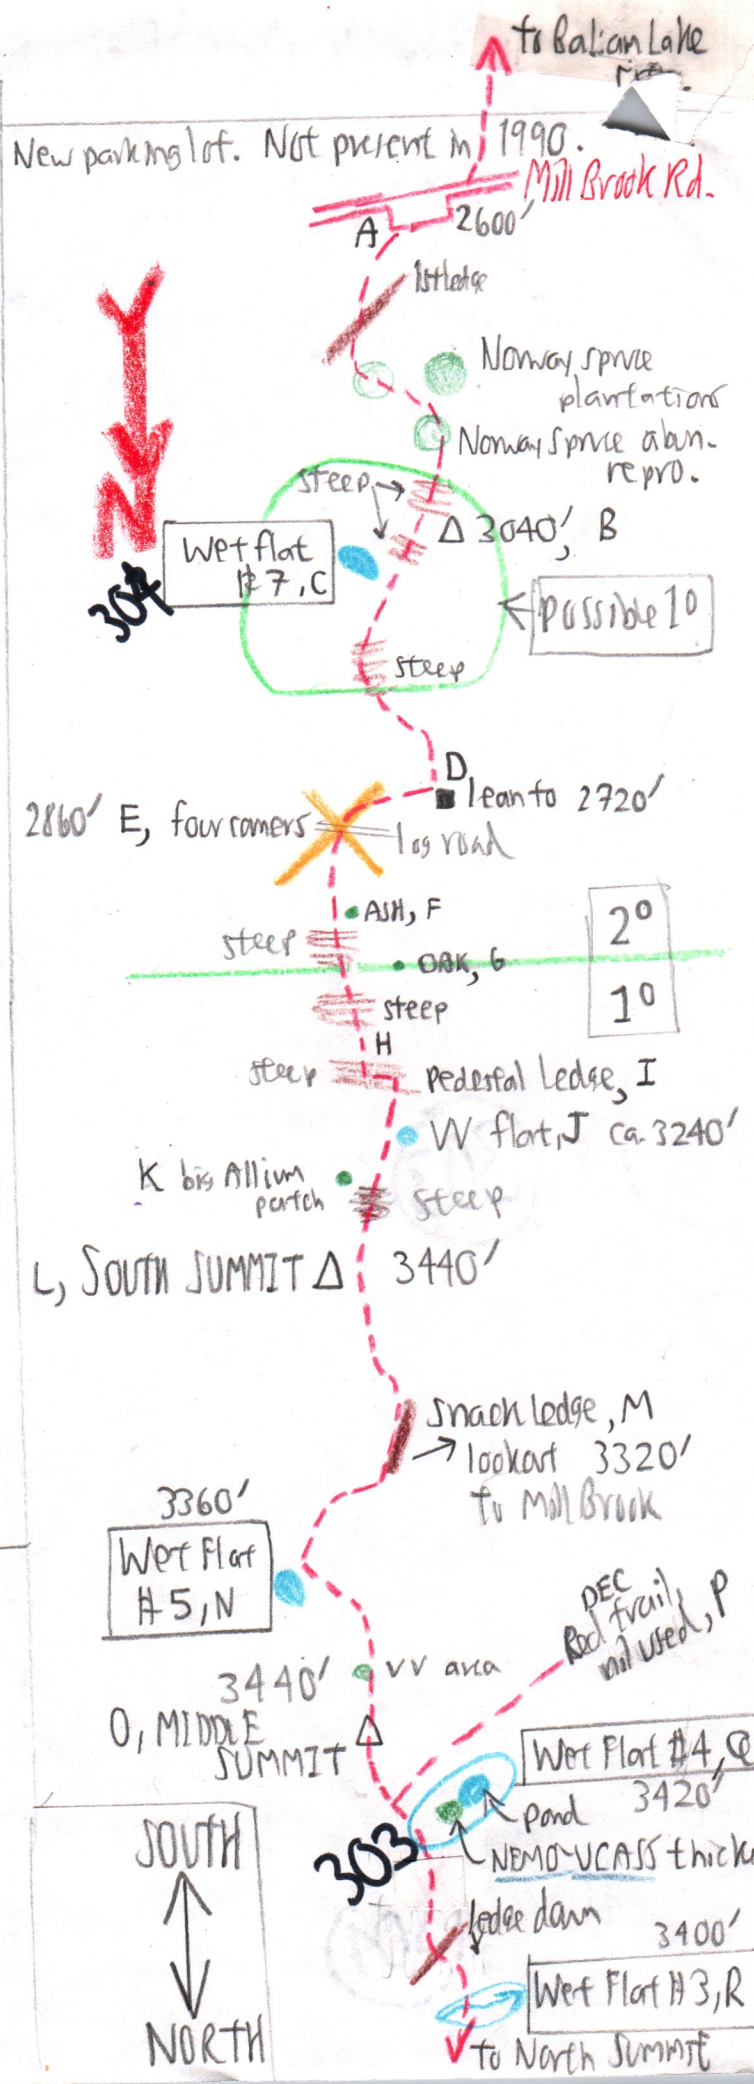 to Balsam Lake
mtn.
New parking lot. Not present in 1990.
Mill Brook Rd.
A
2600'
1st ledge
Norway spruce
plantation
Norway Spruce abun.
repro.
N
steep
Δ 3040', B
Wet flat
#7, C
304
possible 1°
steep
D
lean to 2720'
2860' E, four corners
log road
ASH, F
2°
steep
OAK, G
1°
steep
H
steep
pedestal Ledge, I
W flat, J ca. 3240'
K big Allium
patch
steep
L, SOUTH SUMMIT Δ 3440'
Snack ledge, M
lookout 3320'
to Mill Brook
3360'
Wet Flat
#5, N
DEC
Red trail,
not used, P
3440'
VV area
O, MIDDLE
SUMMIT
Wet Flat #4, Q
3420'
pond
303
NEMO-UCASS thick
SOUTH
NORTH
ledge down
3400'
Wet Flat #3, R
to North Summit